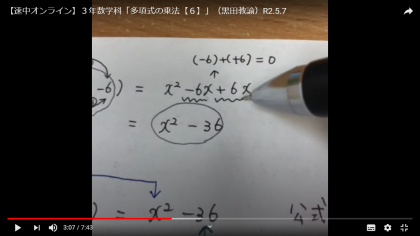 【速中オンライン】３年数学科「多項式の乗法【６】」（黒田教諭）R2.5.7
(-6)+(+6)=0
-6) = x² -6x +6x
= x² - 36
) = x² - 36 公式
3:07 / 7:43